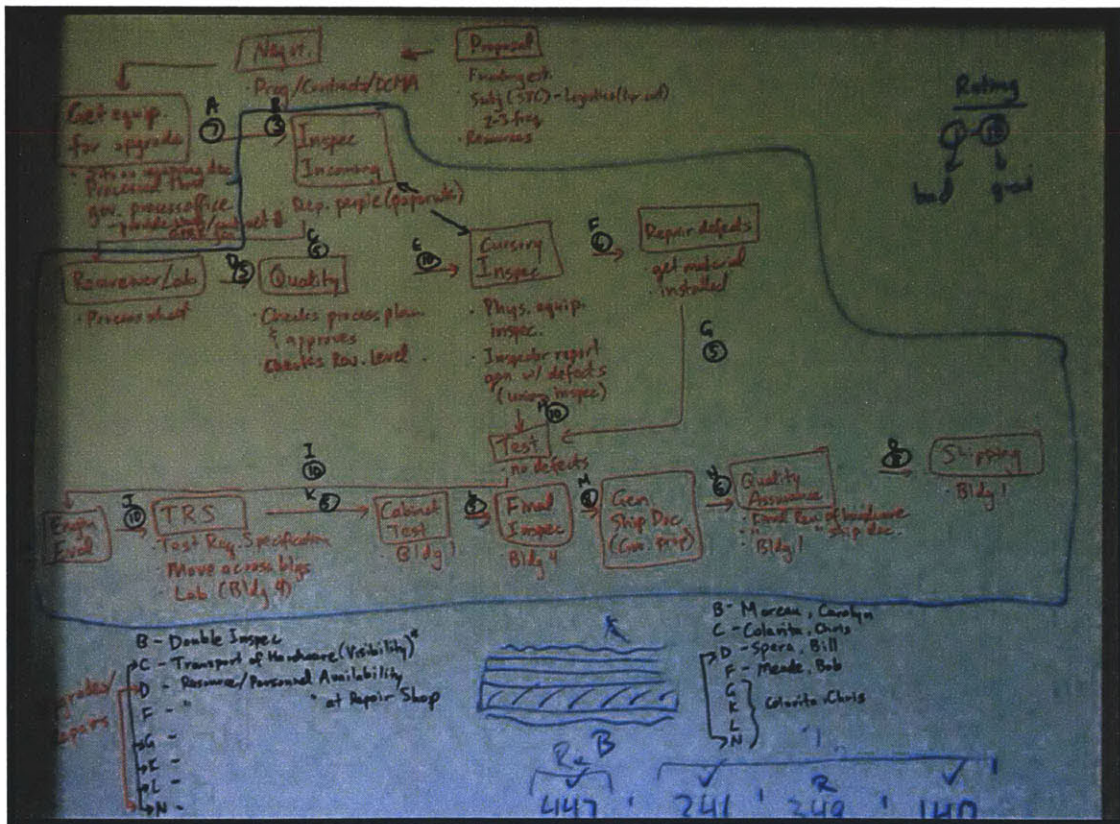 Negot.
Prog/Contracts/DCMA
Proposal
Subj (STC) - Logistics
2-3 freq
Resources
Rating
1 - 10
bad
good
Get equip.
for upgrade
A
7
B
3
Inspec
Incoming
gov. process office
Rep. people (paperwork)
C
5
D
5
Quality
• Checks process plan
& approves
Checks Rev. Level
E
10
Cursory
Inspec
• Phys. equip.
inspec.
• Inspector report
gen w/ defects
(union inspec)
F
Repair defects
• get material
• installed
G
5
H
10
Test
• no defects
I
10
Engin
Eval
J
10
TRS
• Test Req. Specification
• Move across blgs
• Lab (Bldg 4)
K
Cabinet
Test
• Bldg 1
Final
Inspec
• Bldg 4
M
Gen
Ship Doc
(Gov. prop)
Quality
Assurance
• Final Rev. of hardware
" " ship doc.
• Bldg 1
Shipping
• Bldg 1
B - Double Inspec
C - Transport of Hardware (Visibility)*
D - Resource/Personnel Availability
F - " " at Repair Shop
G -
K -
L -
N -
B - Moreau, Carolyn
C - Colarita, Chris
D - Spera, Bill
F - Meade, Bob
G
K
L
N
Colarita, Chris
B
447
241
349
140